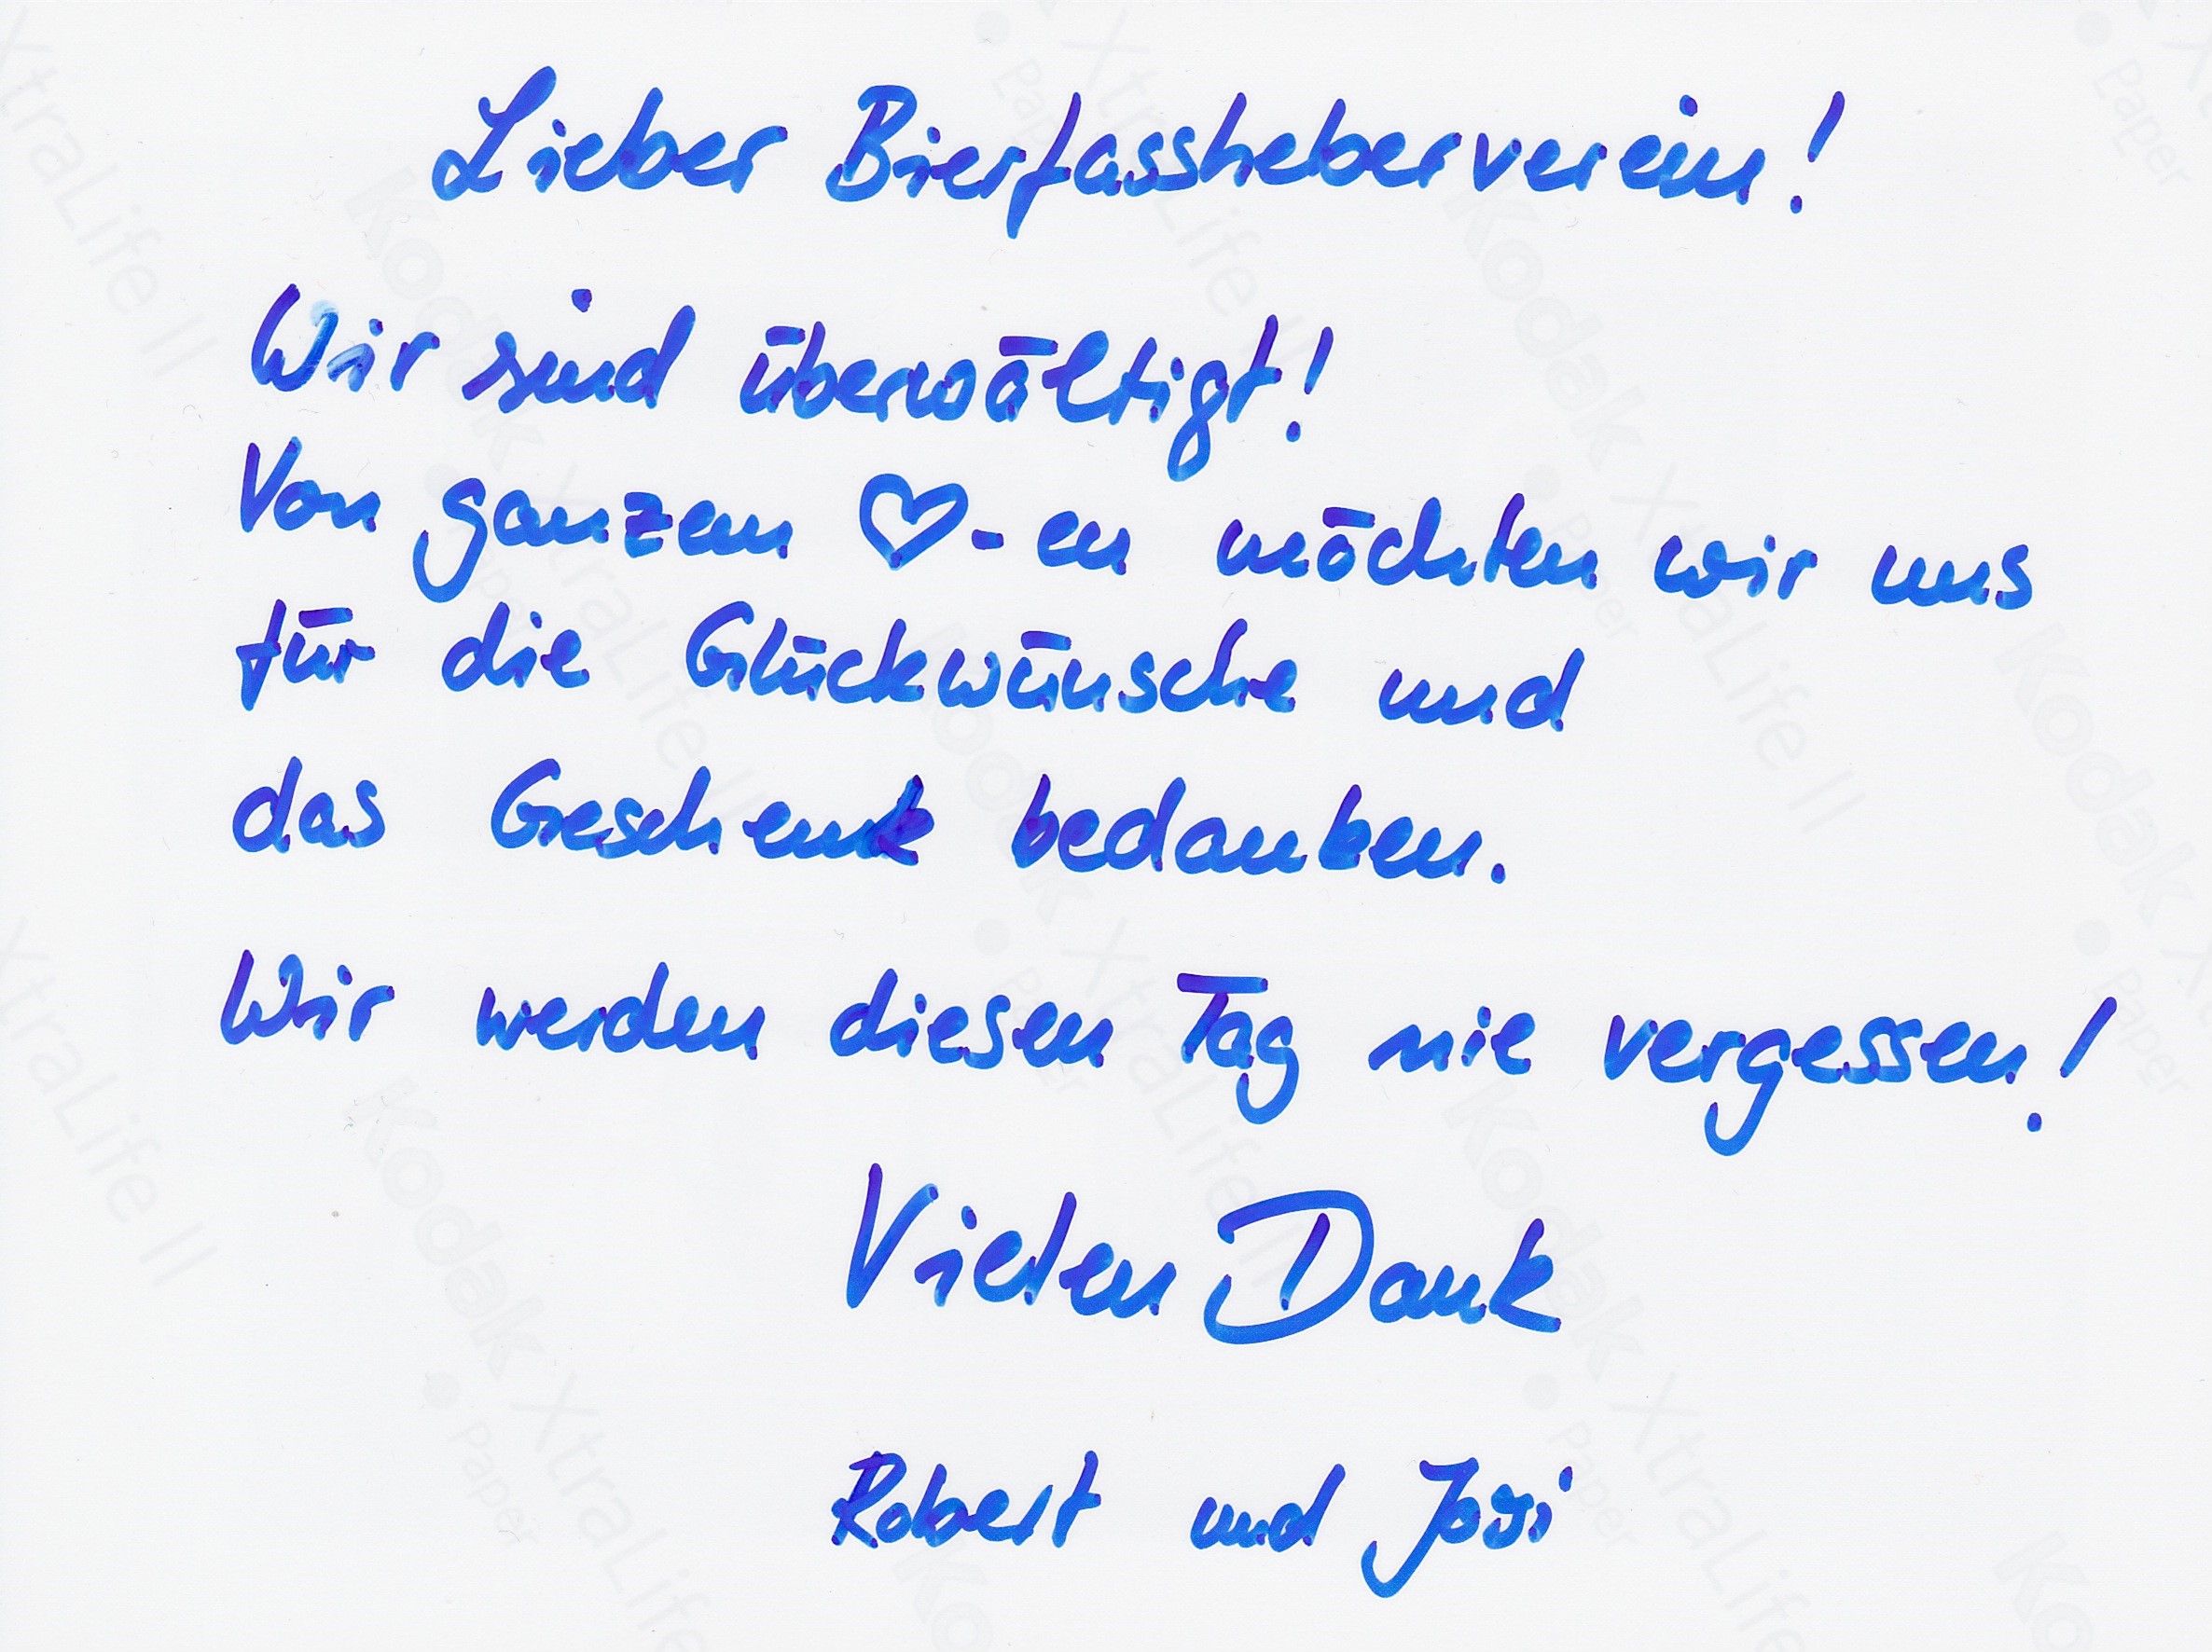 Lieber Bierfassheberverein!
Wir sind überwältigt!
Von ganzem ♡-en möchten wir uns
für die Glückwünsche und
das Geschenk bedanken.
Wir werden diesen Tag nie vergessen!
Vielen Dank
Robert und
Kodak XtraLife II
Paper